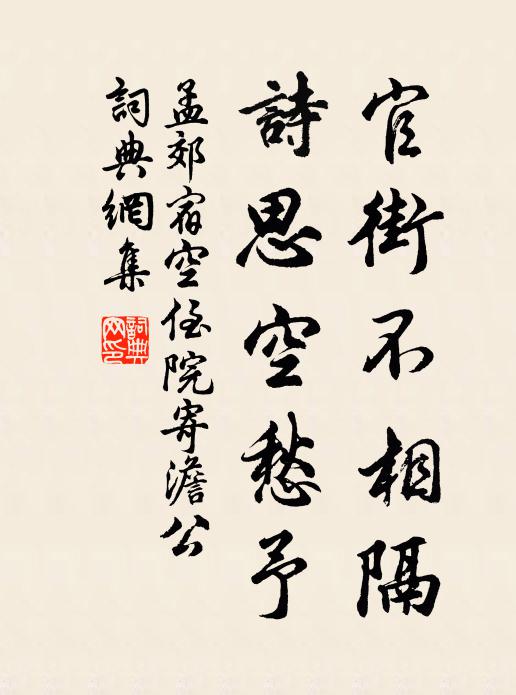 官街不相隔
詩思空愁予
孟郊宿空侄院寄澹公
詞典網集
詞典
网印